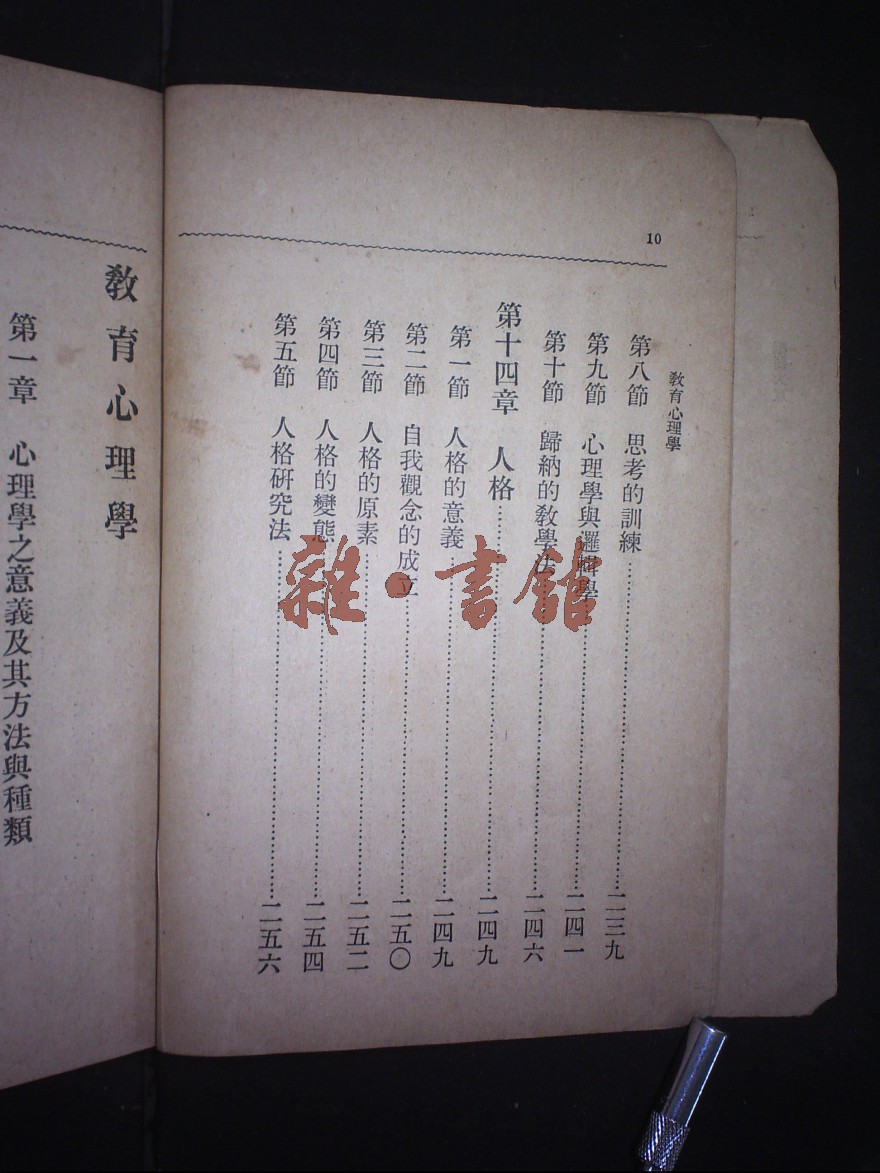 10
教育心理學
第八節 思考的訓練…………二三九
第九節 心理學與邏輯學…………二四一
第十節 歸納的教學法…………二四六
第十四章 人格…………二四九
第一節 人格的意義…………二四九
第二節 自我觀念的成立…………二五〇
第三節 人格的原素…………二五二
第四節 人格的變態…………二五四
第五節 人格研究法…………二五六
雜·書館
教育心理學
第一章 心理學之意義及其方法與種類